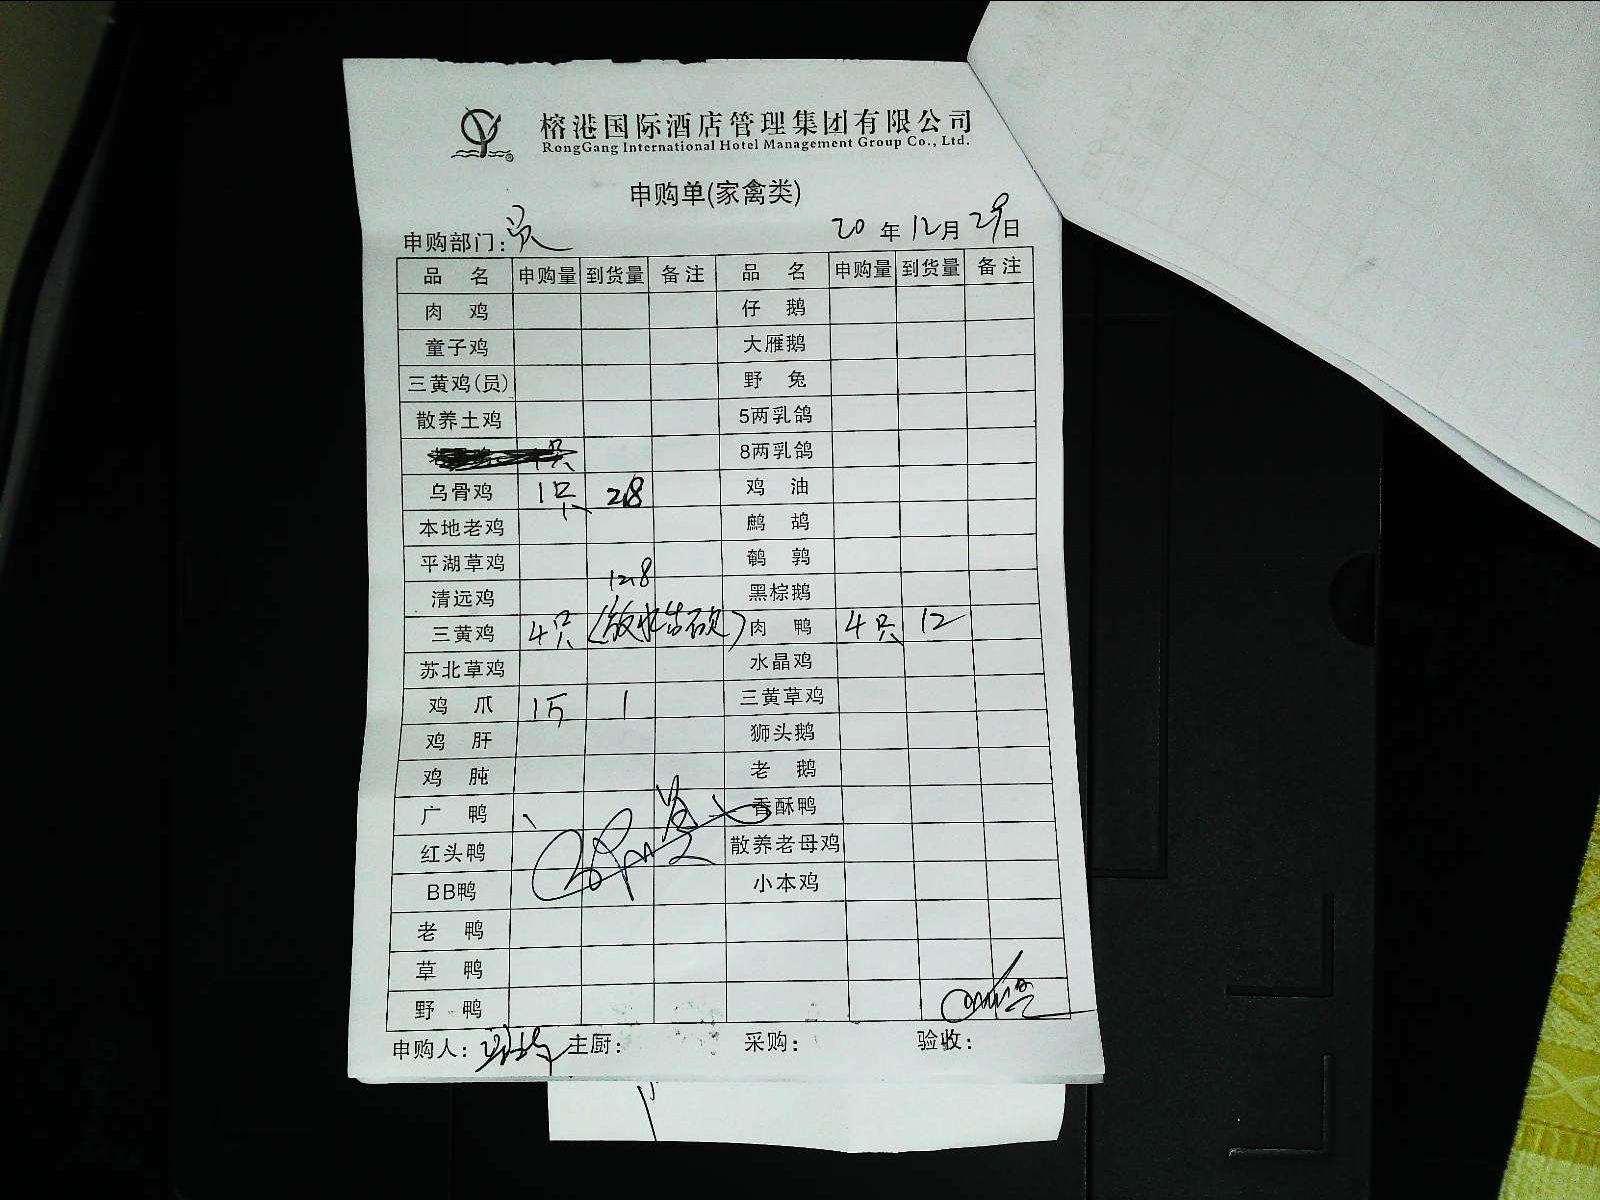 榕港国际酒店管理集团有限公司
RongGang International Hotel Management Group Co., Ltd.
申购单(家禽类)
申购部门: 员 20 年 12 月 29 日
品 名 申购量 到货量 备注 品 名 申购量 到货量 备注
肉 鸡 仔 鹅
童子鸡 大雁鹅
三黄鸡(员) 野 兔
散养土鸡 5两乳鸽
1只 8两乳鸽
乌骨鸡 1只 2.8 鸡 油
本地老鸡 鹧 鸪
平湖草鸡 鹌 鹑
清远鸡 12.8 黑棕鹅
三黄鸡 4只 肉 鸭 4只 12
苏北草鸡 水晶鸡
鸡 爪 1斤 1 三黄草鸡
鸡 肝 狮头鹅
鸡 肫 老 鹅
广 鸭 香酥鸭
红头鸭 散养老母鸡
BB鸭 小本鸡
老 鸭
草 鸭
野 鸭
申购人: 主厨: 采购: 验收: